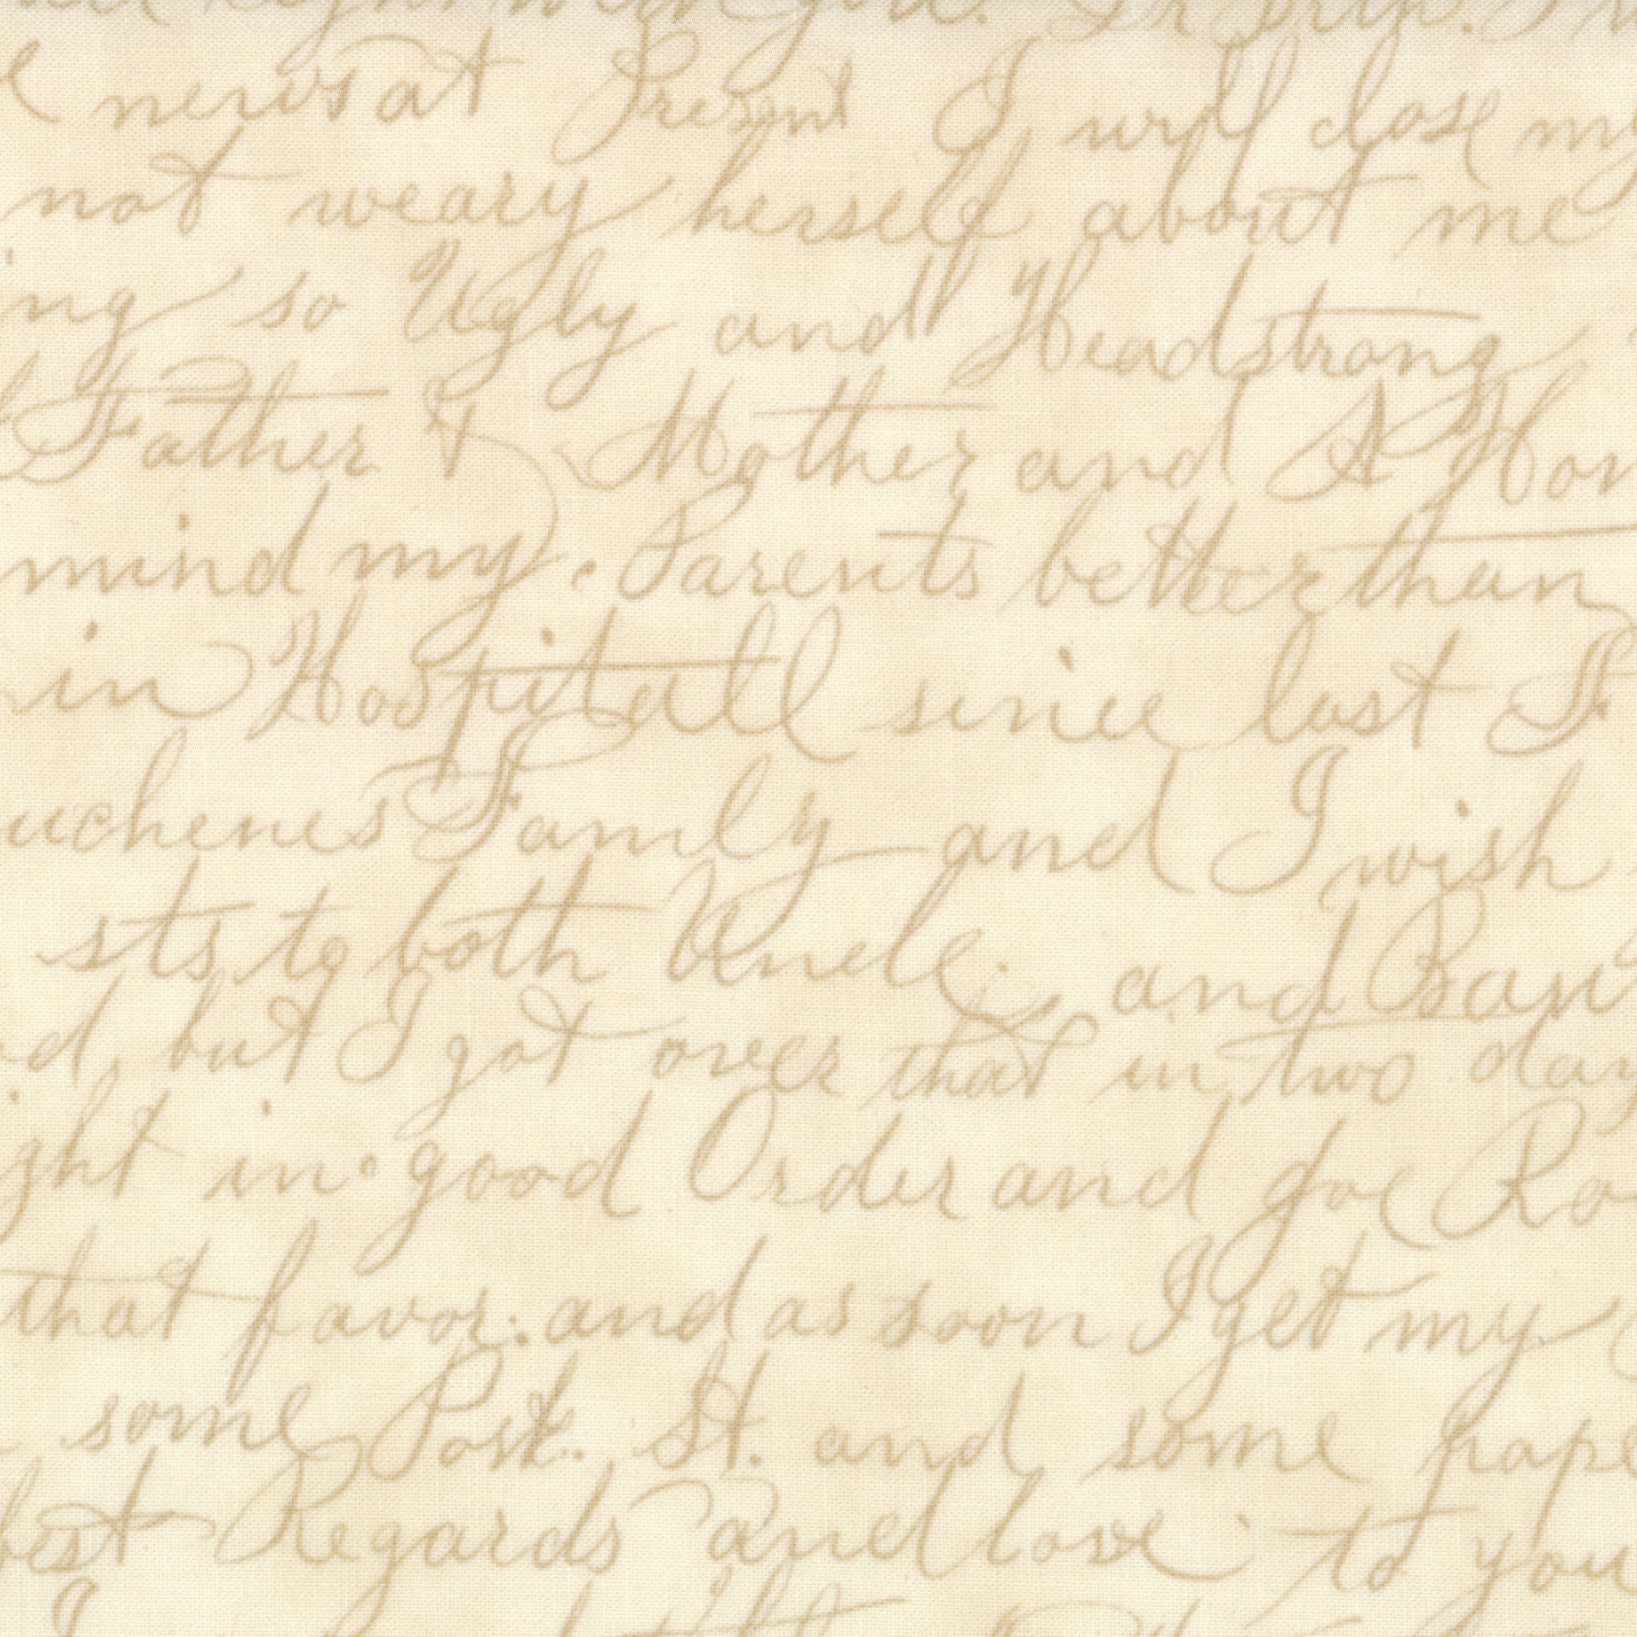 news at Present I will close my
not weary herself about me
ing so Ugly and Headstrong
Father & Mother and A Hom
mind my Parents better than
in Hospitall since last
uchenes Family and I wish
sts to both Uncle and
d but I got over that in two day
ght in good Order and goe Ro
that favor. and as soon I get my
some Post. St. and some pape
best Regards and love to you